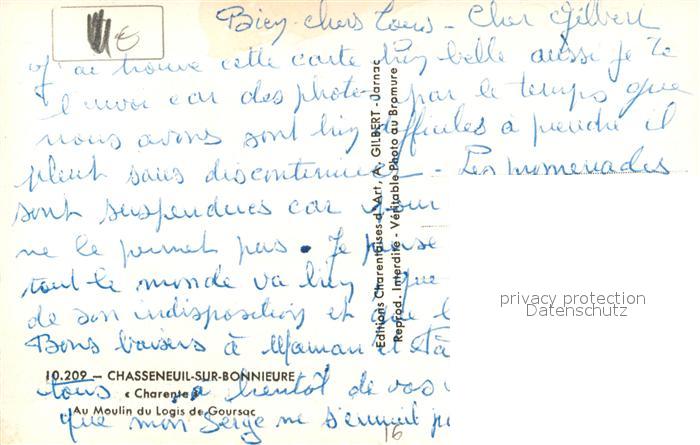 Bien chers tous - Cher Gilbert
J'ai trouvé cette carte bien belle aussi je te
l'envoi car des photos par le temps que
nous avons sont bien difficiles à prendre il
pleut sans discontinuer - Les promenades
sont suspendues car
ne le permet pas. Je pense
tout le monde va bien que
de son indisposition et que
Bons baisers à Maman et
tous à bientôt de vos
que mon Serge ne s'ennuit
16
10.209 – CHASSENEUIL-SUR-BONNIEURE
« Charente »
Au Moulin du Logis de Goursac
Editions Charentaises d'Art, A. GILBERT - Jarnac
Reprod. Interdite - Véritable Photo au Bromure
privacy protection
Datenschutz